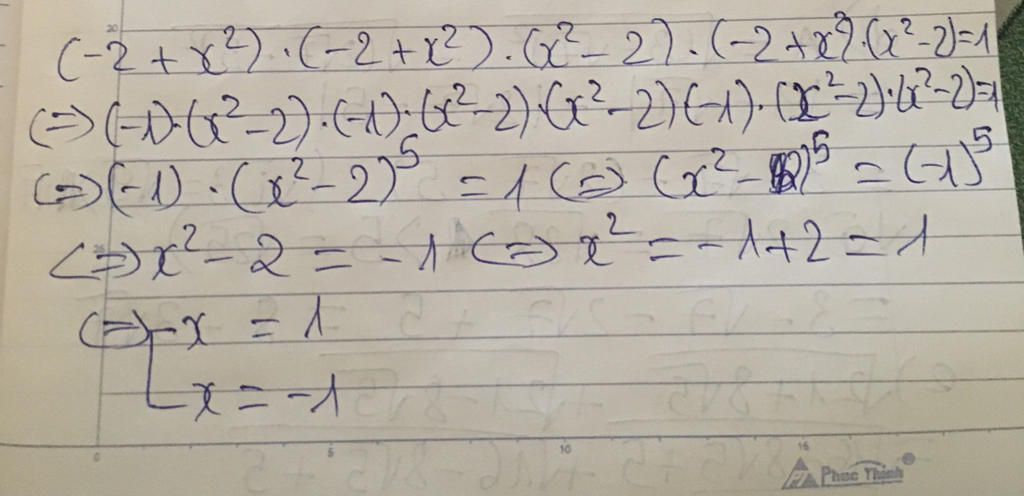 (-2 + x²) · (-2 + x²) · (x² - 2) · (-2 + x²) · (x² - 2) = 1
(=) (-1) · (x² - 2) · (-1) · (x² - 2) · (x² - 2) (-1) · (x² - 2) · (x² - 2) = 1
(=) (-1) · (x² - 2)⁵ = 1 (=) (x² - 2)⁵ = (-1)⁵
(=) x² - 2 = -1 (=) x² = -1 + 2 = 1
(=) x = 1
x = -1
20
0 5 10 15
Phuc Thinh